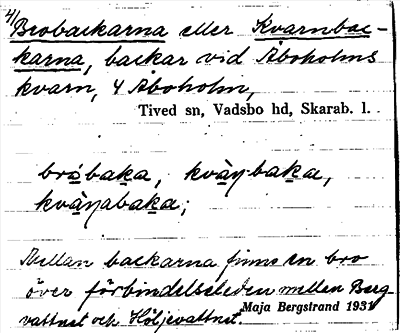 4/
Brobackarna eller Kvarnbac-
karna, backar vid Åboholms
kvarn, 4 Åboholm,
Tived sn, Vadsbo hd, Skarab. l.
brobaka, kvàn̥baka,
kvàn̥abaka;
Mellan backarna finns en bro
över förbindelseleden mellan Berg
vattnet och Höljevattnet.
Maja Bergstrand 1931